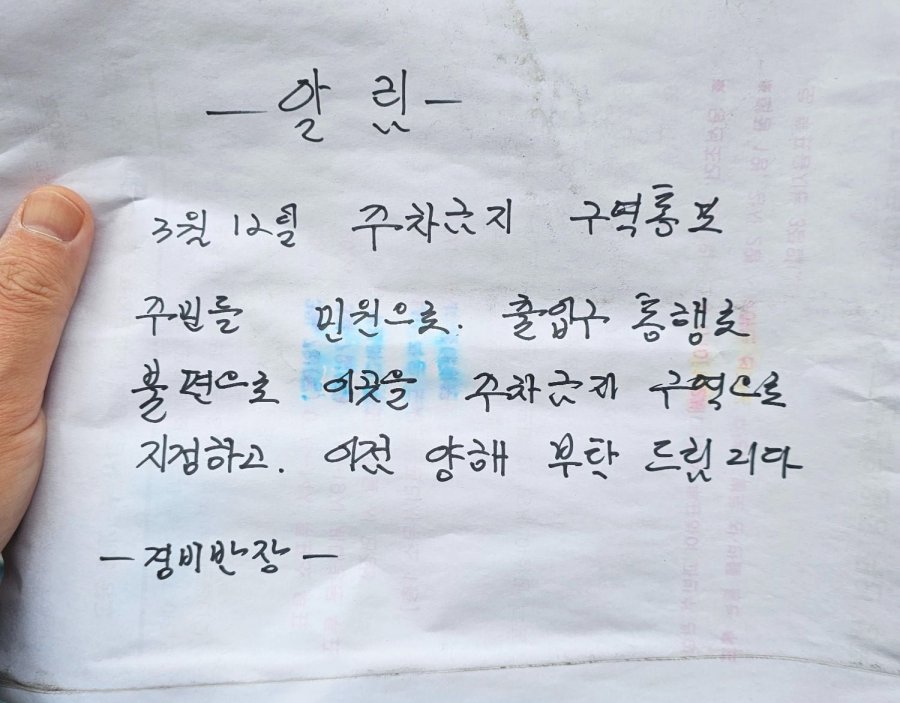 — 알 림 —
3월 12일 주차금지 구역통보
주민들 민원으로. 출입구 통행로
불편으로 이곳을 주차금지 구역으로
지정하고. 이점 양해 부탁 드립니다
— 경비반장 —